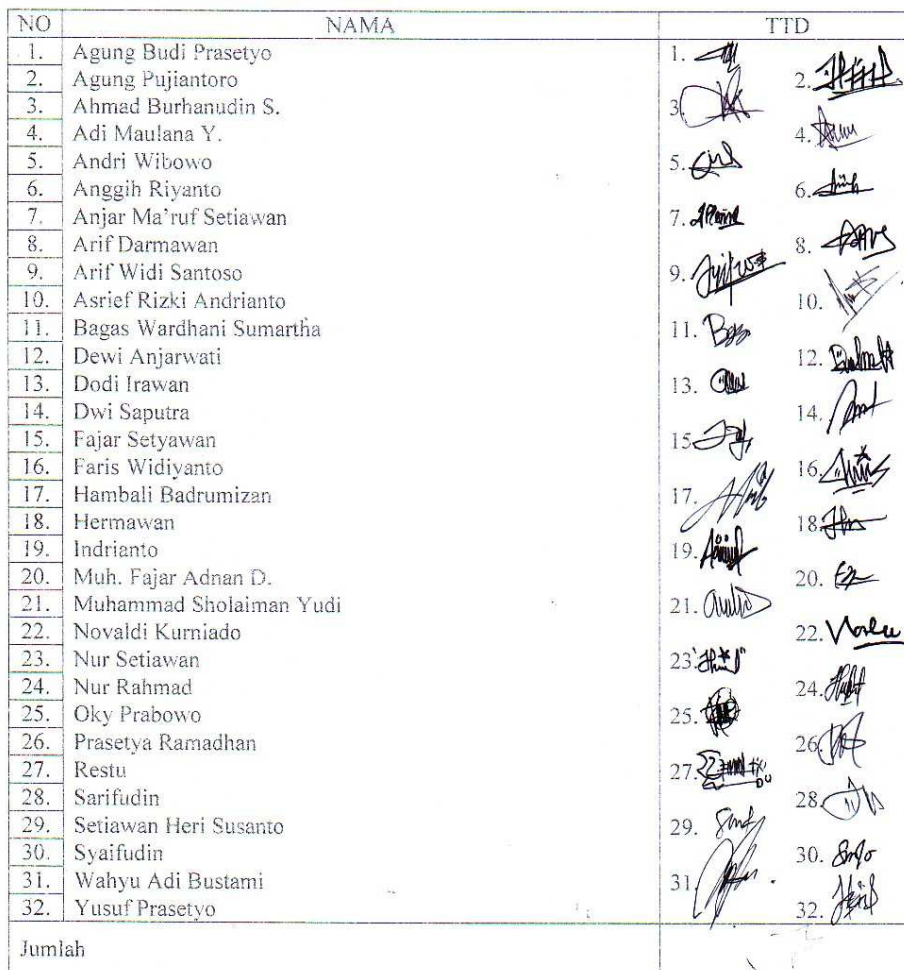 NO NAMA TTD
1. Agung Budi Prasetyo 1.
2. Agung Pujiantoro 2.
3. Ahmad Burhanudin S. 3.
4. Adi Maulana Y. 4.
5. Andri Wibowo 5.
6. Anggih Riyanto 6.
7. Anjar Ma'ruf Setiawan 7.
8. Arif Darmawan 8.
9. Arif Widi Santoso 9.
10. Asrief Rizki Andrianto 10.
11. Bagas Wardhani Sumartha 11.
12. Dewi Anjarwati 12.
13. Dodi Irawan 13.
14. Dwi Saputra 14.
15. Fajar Setyawan 15.
16. Faris Widiyanto 16.
17. Hambali Badrumizan 17.
18. Hermawan 18.
19. Indrianto 19.
20. Muh. Fajar Adnan D. 20.
21. Muhammad Sholaiman Yudi 21.
22. Novaldi Kurniado 22.
23. Nur Setiawan 23
24. Nur Rahmad 24.
25. Oky Prabowo 25.
26. Prasetya Ramadhan 26
27. Restu 27.
28. Sarifudin 28.
29. Setiawan Heri Susanto 29.
30. Syaifudin 30.
31. Wahyu Adi Bustami 31.
32. Yusuf Prasetyo 32.
Jumlah